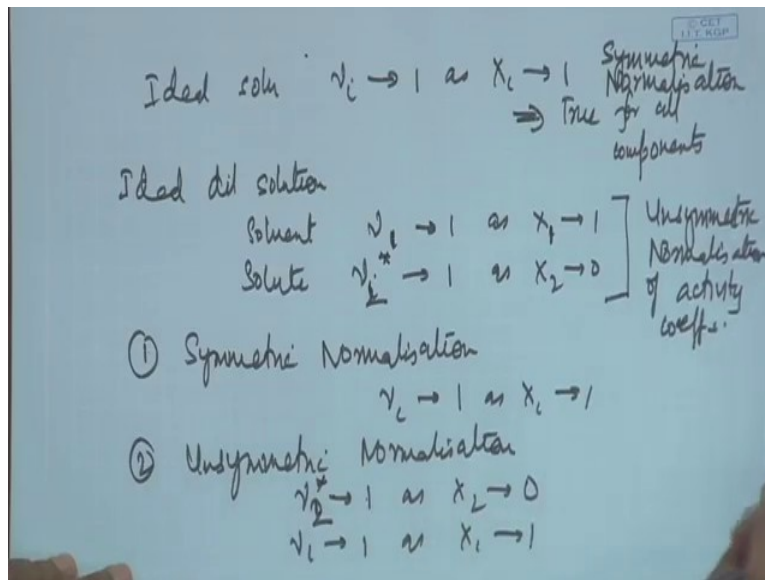 © CET
I.I.T. KGP
Ideal soln γi → 1 as Xi → 1 Symmetric Normalisation
⇒ True for all components
Ideal dil solution
Solvent γ1 → 1 as X1 → 1
Solute γ2* → 1 as X2 → 0
Unsymmetric
Normalisation
of activity
coeffs.
① Symmetric Normalisation
γi → 1 as Xi → 1
② Unsymmetric Normalisation
γ2* → 1 as X2 → 0
γ1 → 1 as X1 → 1